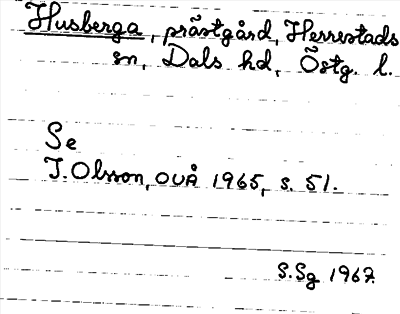 Husberga, prästgård, Herrestads
sn, Dals hd, Östg. l.
Se
I. Olsson, OUÅ 1965, s. 51.
S.Sg 1967.